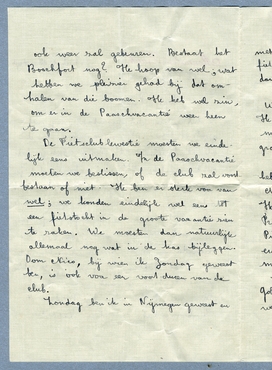 ook weer zal gebeuren. Bestaat het
Boschfort nog? Ik hoop van wel; wat
hebben we pleizier gehad bij dat om-
halen van die boomen. Ik heb wel zin,
om er in de Paaschvacantie weer heen
te gaan.
De Fietsclubkwestie moeten we einde-
lijk eens uitmaken. In de Paaschvacantie
moeten we beslissen, of de club zal voort
bestaan of niet. Ik ben er sterk voor van
wel; we konden eindelijk wel eens
een fietstocht in de groote vacantie zien
te maken. We moesten dan natuurlijk
allemaal nog wat in de kas bijleggen.
Oom Kees, bij wien ik Zondag geweest
ben, is ook voor een voortduren van de
club.
Zondag ben ik in Nijmegen geweest en